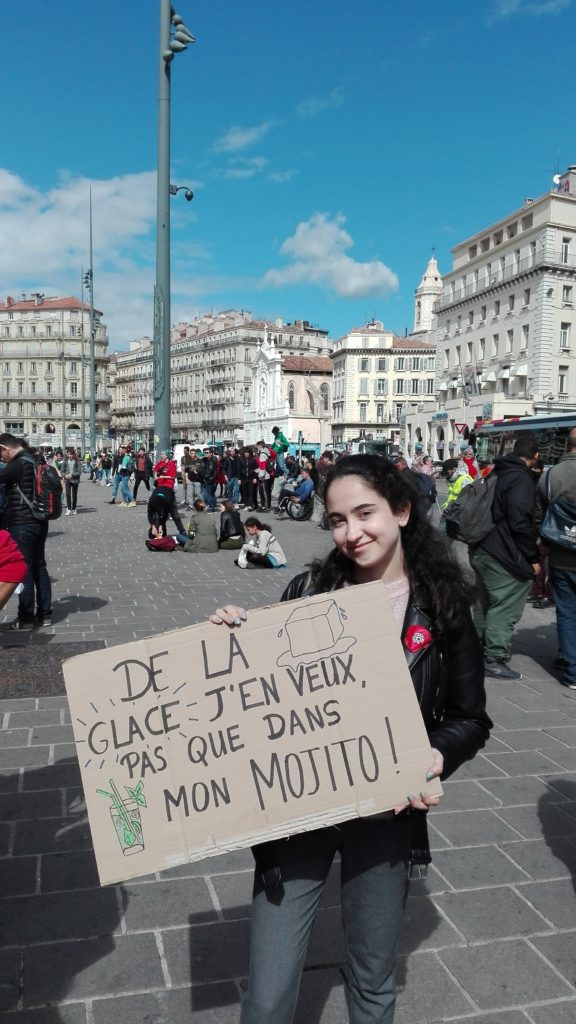 DE LA
GLACE J'EN VEUX,
PAS QUE DANS
MON MOJITO !
adidas